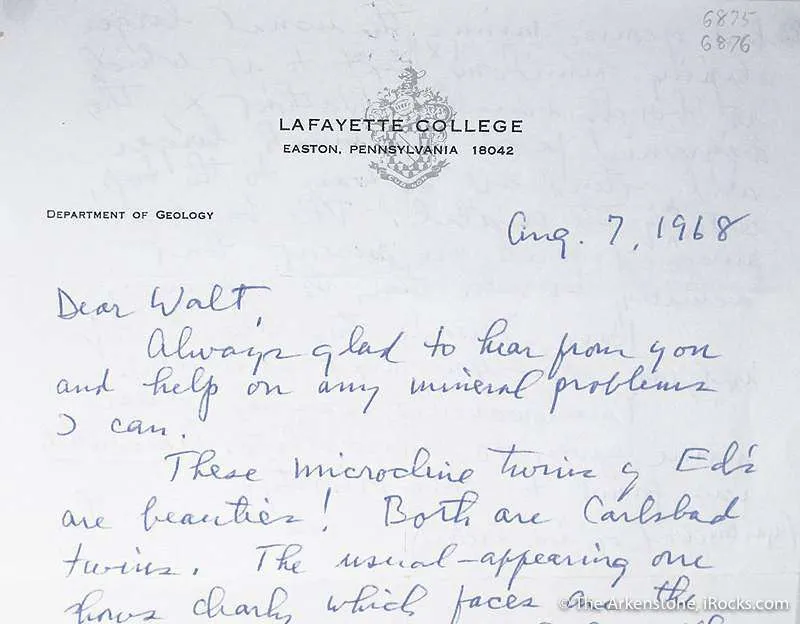 6875
6876
LAFAYETTE COLLEGE
EASTON, PENNSYLVANIA 18042
DEPARTMENT OF GEOLOGY
Aug. 7, 1968
Dear Walt,
Always glad to hear from you
and help on any mineral problems
I can.
These microcline twins of Ed's
are beauties! Both are Carlsbad
twins. The usual-appearing one
shows clearly which faces are the
© The Arkenstone, iRocks.com